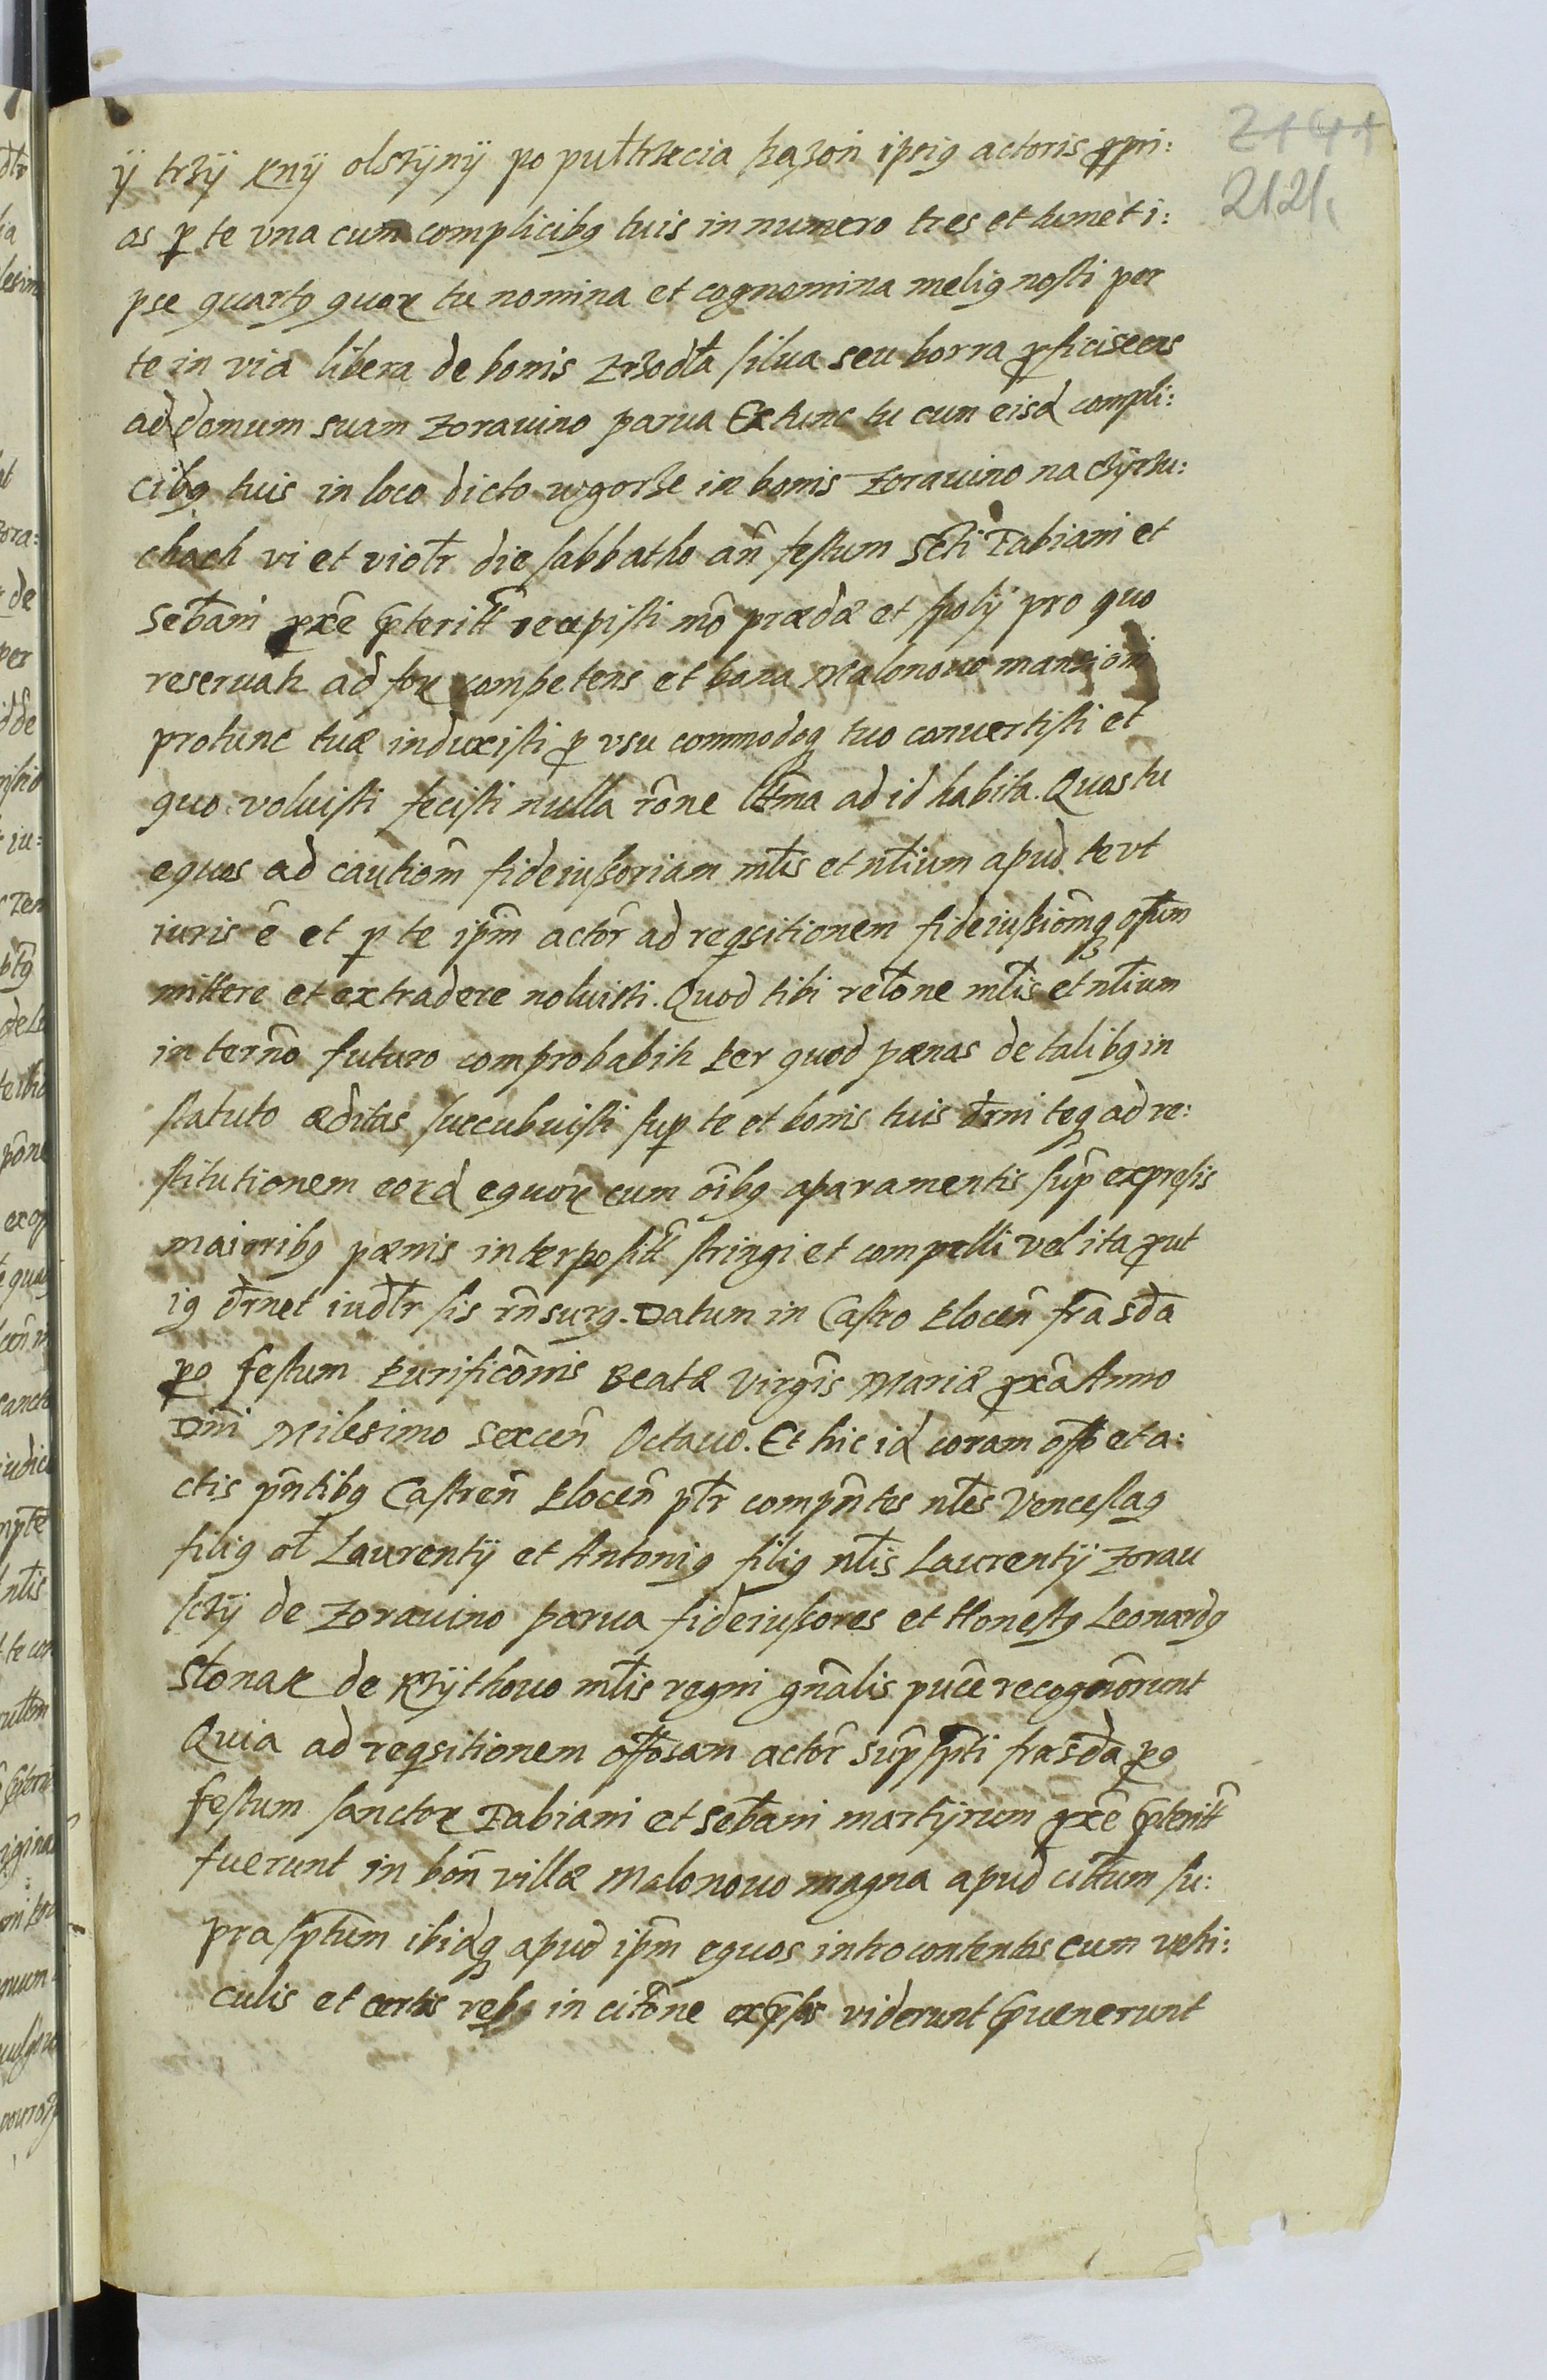 2141
2121
ÿ trzÿ knÿ olszÿnÿ po pułtrzecia sązoń ipsi9 actoris ꝓpri:
as ꝑ te vna cum complicib9 tuis in numero tres et tumet i:
pse quart9 quoꝝ tu nomina et cognomina meli9 nosti per
te in via libera de bonis Zrzodła silua seu borra ꝓficiscens
ad domum suam Zorauino parua Extunc tu cum eisd compli:
cib9 tuis in loco dicto wgorze in bonis Zorauino na
chach vi et violtr die sabbatho añ festum Scti Fabiani et
Sebani ꝓxe p̃teritt recepisti mõ prædæ et spolÿ pro quo
reseruah ad foꝝ competens et bona Malonowo mansioni
protunc tuæ induxisti ꝓ vsu commodoq3 tuo conuertisti et
quo voluisti fecisti nulla rõne ltma ad id habita. Quos tu
equos ad cautiom̃ fideiussoriam mltis et nltium apud te vt
iuris ẽ et ꝑ te ipm̃ actor̃ ad reqsitionem fideiussiomq3 optum
mittere et extradere noluisti. Quod tibi reltone mltis et nltium
in termño futuro comprobabit Per quod pænas de talib9 in
statuto æditas succubuisti suꝑ te et bonis tuis drni teq3 ad re:
stitutionem eoꝝd equoꝝ cum oib9 aparamentis sup̃ expressis
maiorib9 pænis interpositt stringi et compelli vel ita ꝓut
i9 drnet iudtr sis rñsur9. Datum in Castro Plocen̄ fra sda
po festum Purificõnis Beatæ Virginis Mariæ ꝓxa Anno
Dni Milesimo Sexceñ Octauo. Et hic id coram offo et a:
ctis pñtib9 Castren̄ Plocen̄ pltr compñtes nltes Venceslaq
fili9 olt Laurentÿ et Antoni9 fili9 nltis Laurentÿ Zorau
skÿ de Zorauino parua fideiussores et Honest9 Leonard9
Słonak de Krÿthowo mltis regni gnalis puce recognorunt
Quia ad reqsitionem offosam actor̃ sup̃spti fra sda po
festum sanctoꝝ Fabiani et Sebani martÿrum ꝓxe p̃teritt
fuerunt in boñ villæ Malonowo magna apud citum su:
pra sptum ibidq3 apud ipm̃ equos introcontentos cum vehi:
culis et certis reb9 in citone exp̃ssis viderunt p̃uenerunt